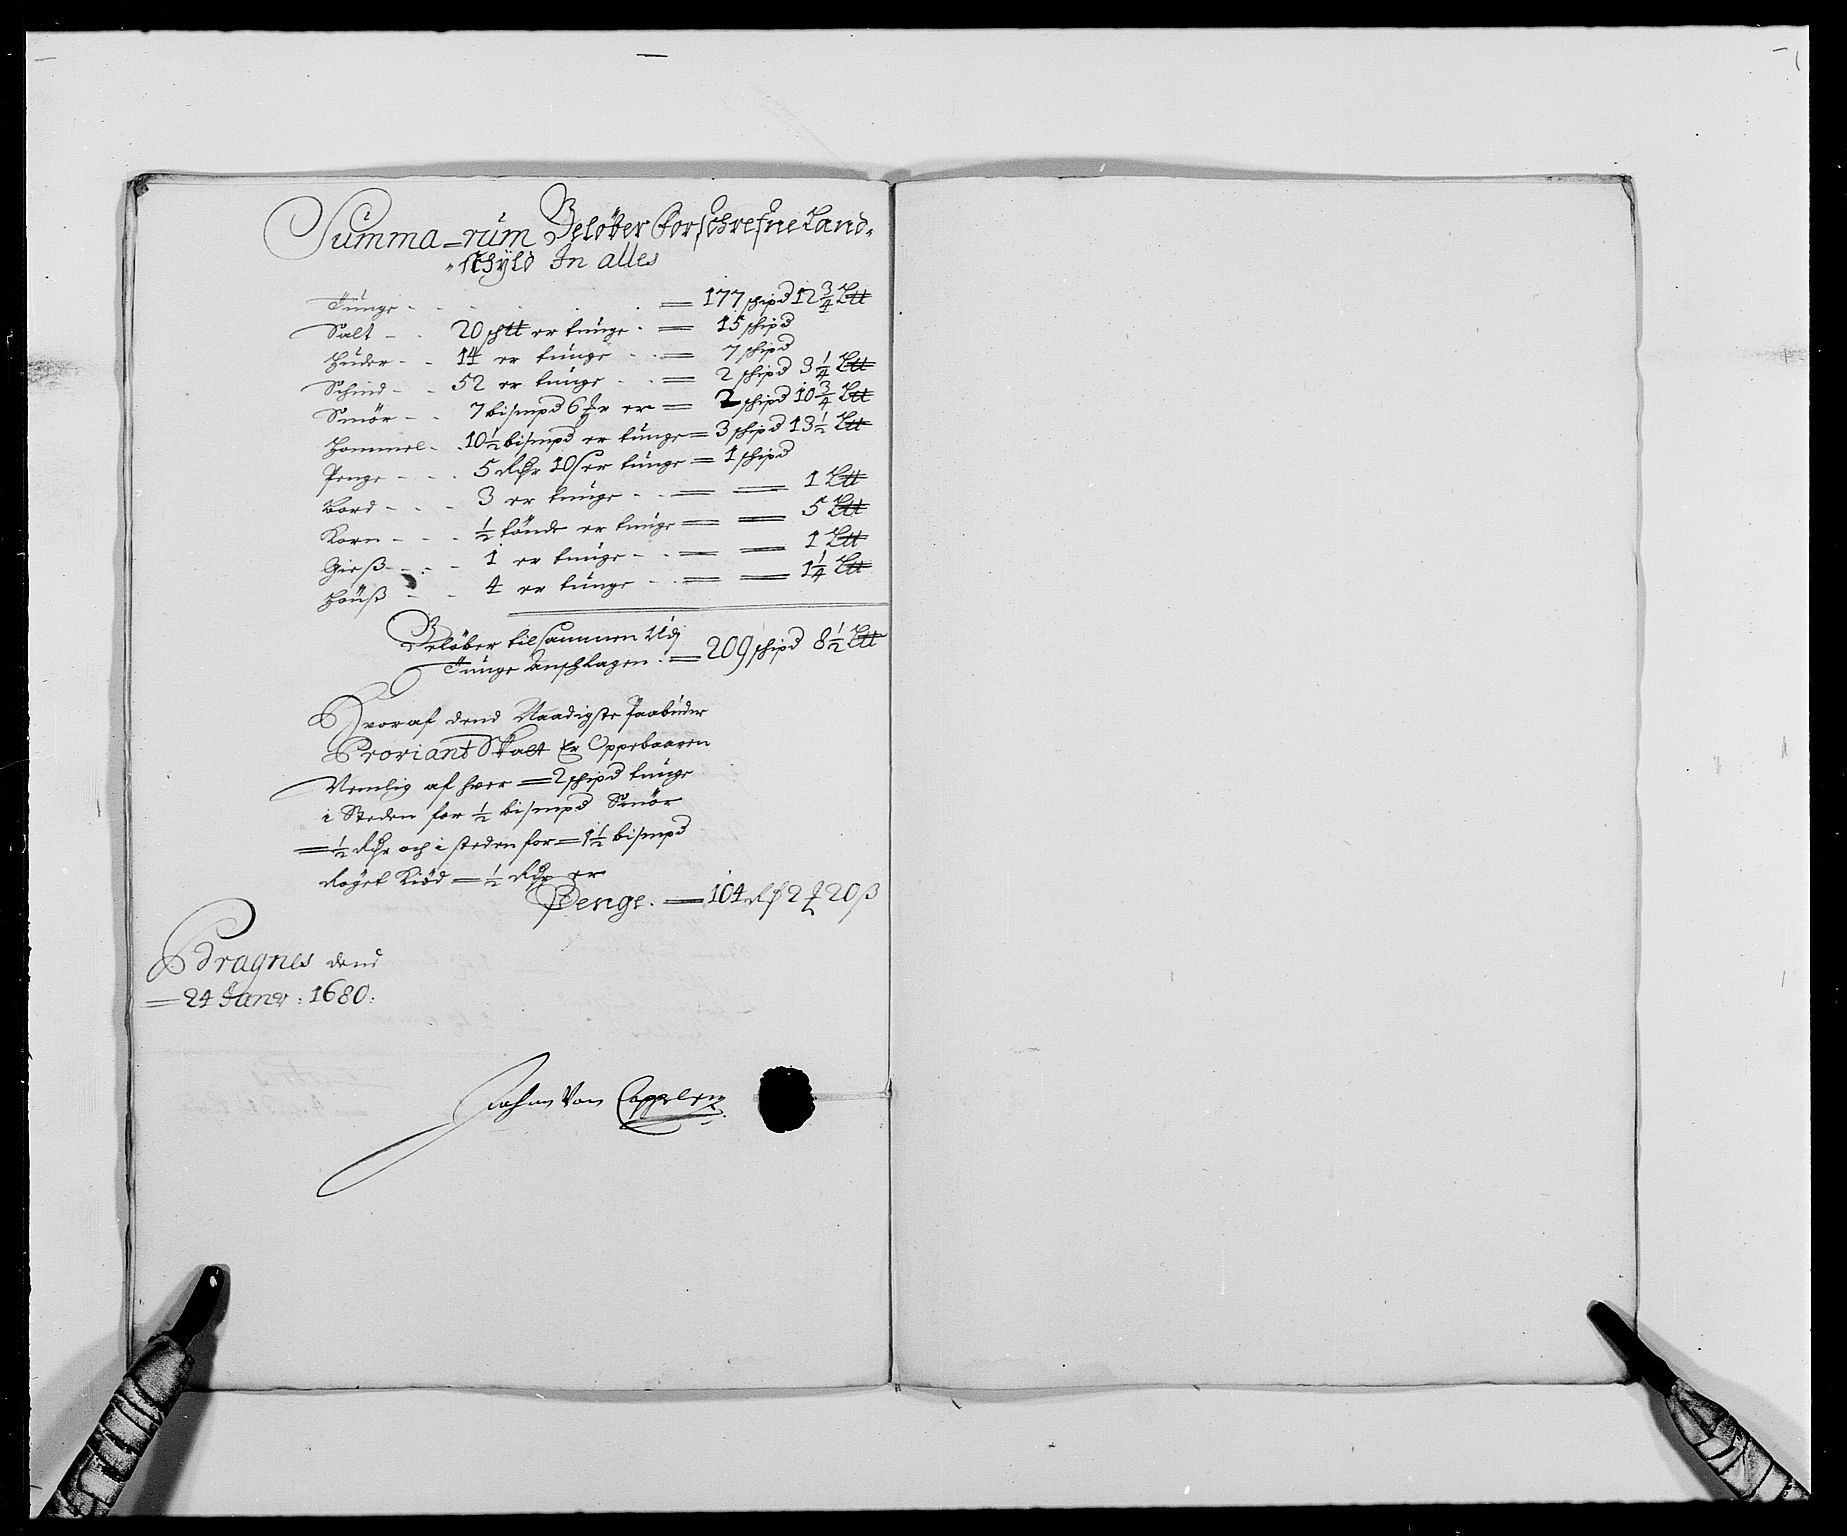 Summa-rum Beløber Forschrefne Land-
schyld In alles
Tunge - - = 177 schipd 12 3/4 Ltt
Salt - - 20 schtt er tunge - = 15 schipd
Huder - - 14 er tunge - - = 7 schipd
Schind - - 52 er tunge - - = 2 schipd 3 1/4 Ltt
Smør - - 7 bismpd 6 er = 2 schipd 10 3/4 Ltt
Hommel - - 10 1/2 bismpd er tunge = 3 schipd 13 1/2 Ltt
Penge - - - 5 Rdr 10 s er tunge = 1 schipd
Bord - - - 3 er tunge - - = = 1 Ltt
Korn - - - 1/2 tønde er tunge = = 5 Ltt
Gieß - - - 1 er tunge - - = = 1 Ltt
Høuß - - 4 er tunge - - = = 1 1/4 Ltt
Beløber tilsammen Udj
Tunge Anschlagen - = 209 schipd 8 1/2 Ltt
Hvoraf dend Naadigste Paabuder
Proviant Skatt Er Oppebaaren
Nemlig af hver = 2 schipd tunge
i Steden for 1/2 bismpd Smør
= 1/2 Rdr och i steden for = 1 1/2 bismpd
Røget Kiød = 1/2 Rdr er
Penge - = 104 Rd 2 20 ß
Bragnes dend
= 24 Janr: 1680:
Johan Von Cappelen